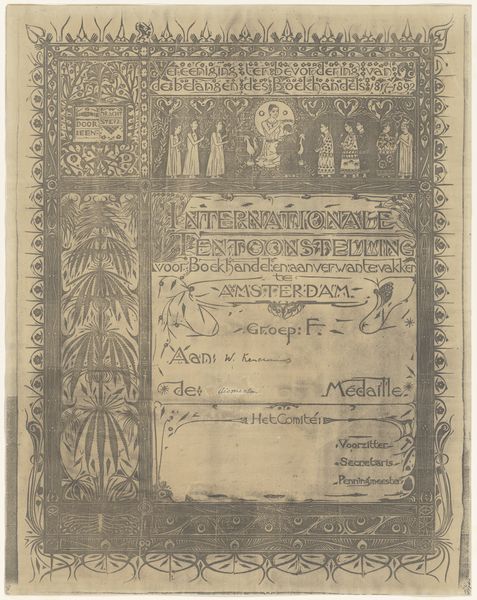 Vereeniging ter bevordering van
de belangen des Boekhandels 1817-1892
EENDRACHT
DOOR
EEN
INTERNATIONALE
TENTOONSTELLING
voor Boekhandel en aanverwante vakken
te
AMSTERDAM.
Groep: F.
Aan: W.
de: Médaille.
Het Comité:
Voorzitter
Secretaris
Penningmeester